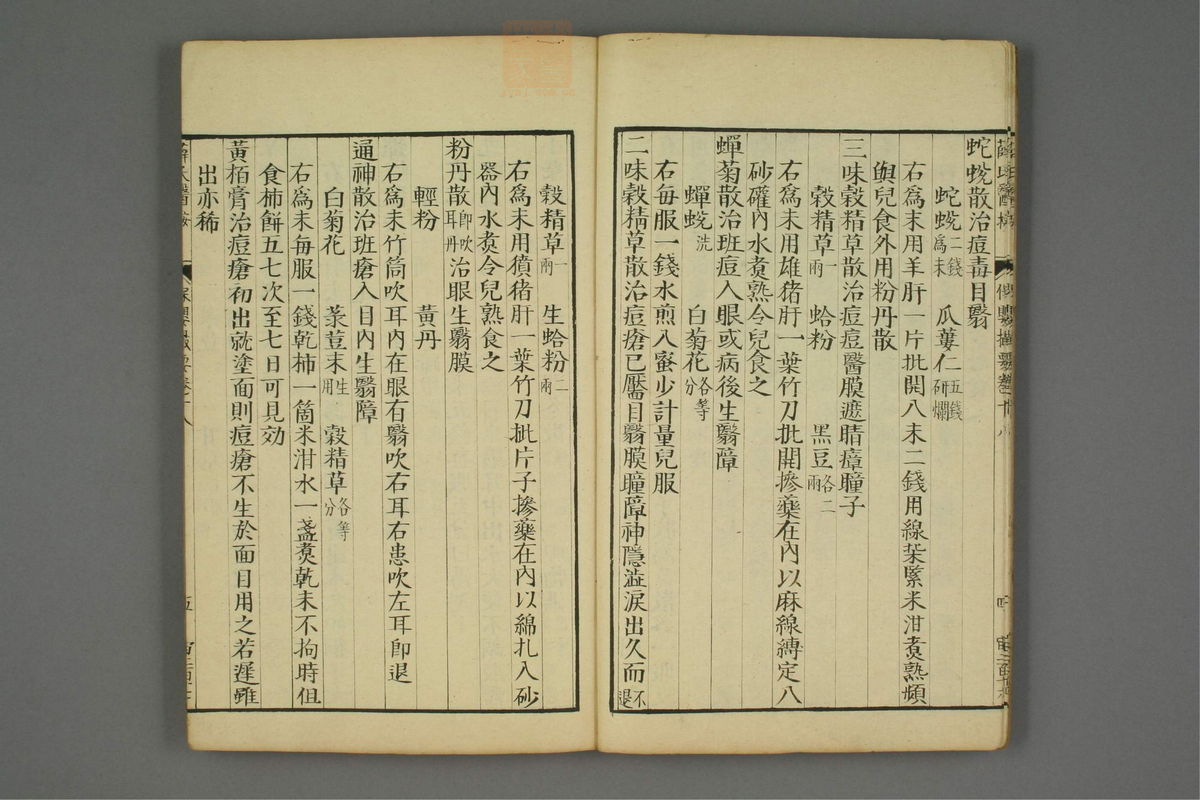 蛇蛻散治痘毒目翳
蛇蛻二錢爲末 瓜蔞仁五錢研爛
右爲末用羊肝一片批開入末二錢用線𥿄緊米泔煮熟頻
與兒食外用粉丹散
三味穀精草散治痘痘翳膜遮睛瘴瞳子
穀精草一兩 蛤粉 黑豆各二兩
右爲末用雄猪肝一葉竹刀批開摻藥在內以麻線縛定入
砂礶內水煮熟令兒食之
蟬菊散治班痘入眼或病後生翳障
蟬蛻洗 白菊花各等分
右每服一錢水煎入蜜少計量兒服
二味穀精草散治痘瘡已靨目翳膜瞳障神隱澁淚出久而不退
穀精草一兩 生蛤粉二兩
右爲末用獖猪肝一葉竹刀批片子摻藥在內以綿扎入砂
器內水煮令兒熟食之
粉丹散即吹耳丹治眼生翳膜
輕粉 黃丹
右爲末竹筒吹耳內在眼有翳吹右耳右患吹左耳卽退
通神散治班瘡入目內生翳障
白菊花 菉荳末生用 穀精草各等分
右爲末每服一錢乾柿一箇米泔水一盞煮乾未不拘時但
食柿餅五七次至七日可見効
黃栢膏治痘瘡初出就塗面則痘瘡不生於面目用之若遲雖
出亦稀